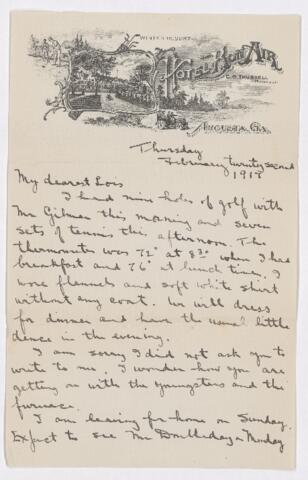 WINTER RESORT
HOTEL BON AIR
C. G. TRUSSELL
MANAGER
AUGUSTA, GA.
Thursday
February twenty second
1917
My dearest Lois
I had nine holes of golf with
Mr Gilman this morning and seven
sets of tennis this afternoon. The
thermometer was 72° at 8³⁰ when I had
breakfast and 76° at lunch time. I
wore flannels and soft white shirt
without any coat. We will dress
for dinner and have the usual little
dance in the evening.
I am sorry I did not ask you to
write to me. I wonder how you are
getting on with the youngsters and the
furnace.
I am leaving for home on Sunday.
Expect to see Mr Doubleday on Monday